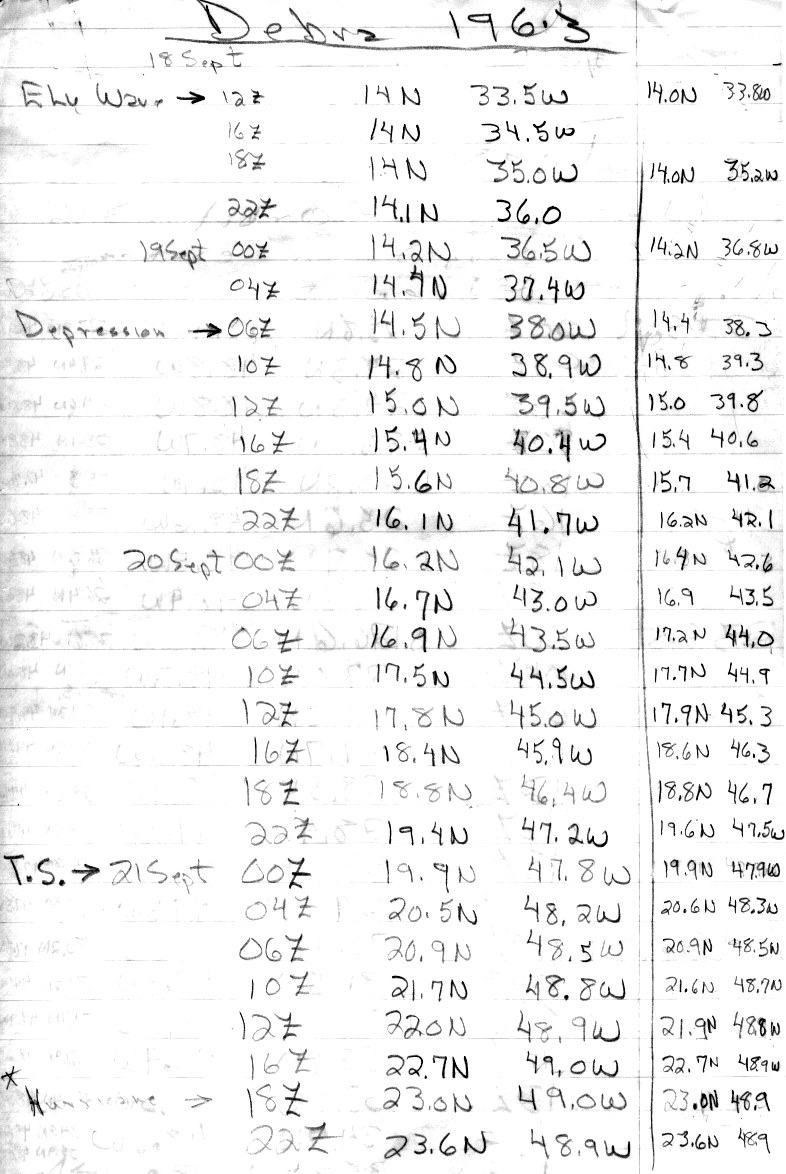 Debra 1963
18 Sept
Ely Wave → 12Z 14N 33.5W 14.0N 33.8W
16Z 14N 34.5W
18Z 14N 35.0W 14.0N 35.2W
22Z 14.1N 36.0
19 Sept 00Z 14.2N 36.5W 14.2N 36.8W
04Z 14.4N 37.4W
Depression → 06Z 14.5N 38.0W 14.4 38.3
10Z 14.8N 38.9W 14.8 39.3
12Z 15.0N 39.5W 15.0 39.8
16Z 15.4N 40.4W 15.4 40.6
18Z 15.6N 40.8W 15.7 41.2
22Z 16.1N 41.7W 16.2N 42.1
20 Sept 00Z 16.2N 42.1W 16.4N 42.6
04Z 16.7N 43.0W 16.9 43.5
06Z 16.9N 43.5W 17.2N 44.0
10Z 17.5N 44.5W 17.7N 44.9
12Z 17.8N 45.0W 17.9N 45.3
16Z 18.4N 45.9W 18.6N 46.3
18Z 18.8N 46.4W 18.8N 46.7
22Z 19.4N 47.2W 19.6N 47.5W
T.S. → 21 Sept 00Z 19.9N 47.8W 19.9N 47.9W
04Z 20.5N 48.2W 20.6N 48.3N
06Z 20.9N 48.5W 20.9N 48.5N
10Z 21.7N 48.8W 21.6N 48.7N
12Z 22.0N 48.9W 21.9N 48.8W
16Z 22.7N 49.0W 22.7N 48.9W
* Hurricane → 18Z 23.0N 49.0W 23.0N 48.9
22Z 23.6N 48.9W 23.6N 48.9